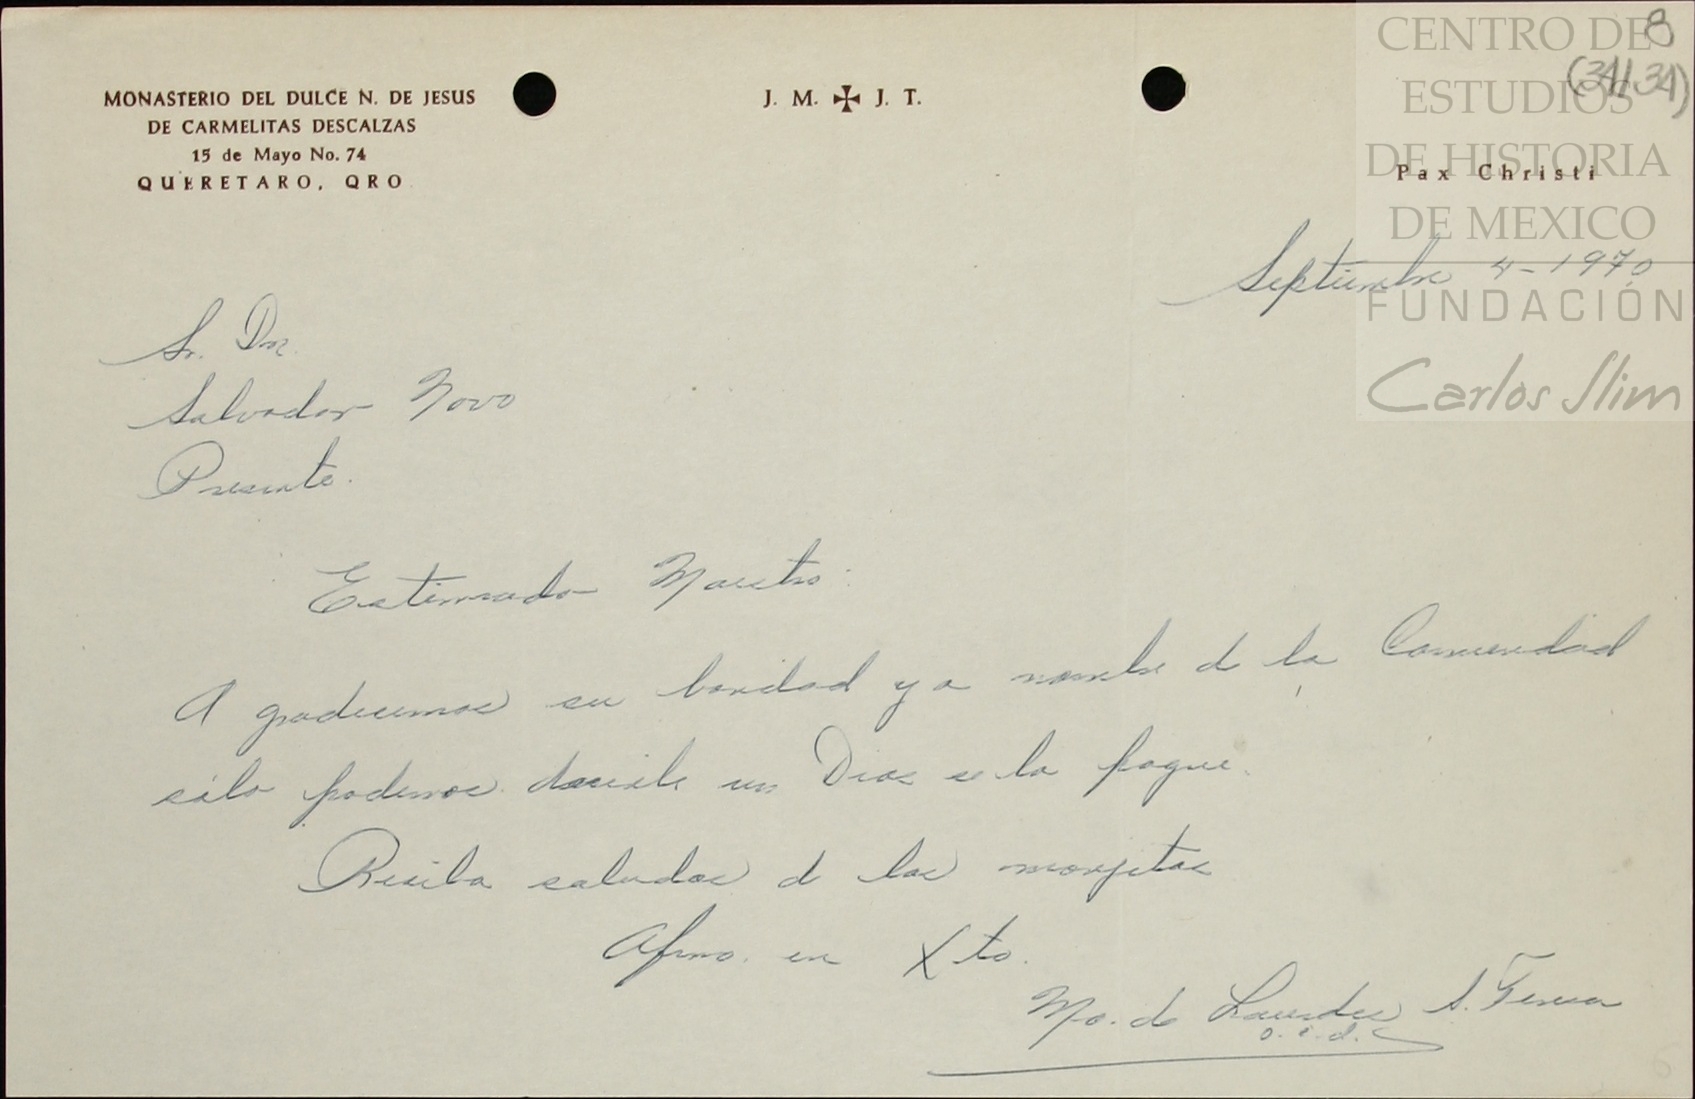 MONASTERIO DEL DULCE N. DE JESUS
DE CARMELITAS DESCALZAS
15 de Mayo No. 74
QUERETARO, QRO
J. M. ✠ J. T.
8
(34/34)
Pax Christi
CENTRO DE
ESTUDIOS
DE HISTORIA
DE MEXICO
FUNDACIÓN
Carlos Slim
Septiembre 4-1970
Sr. Dn.
Salvador Novo
Presente.
Estimado Maestro:
A gradecemos su bondad y a nombre de la Comunidad
sólo podemos decirle un Dios se lo pague.
Reciba saludos de las monjitas
Afma. en Xto.
Ma. de Lourdes S. Teresa
o.c.d.